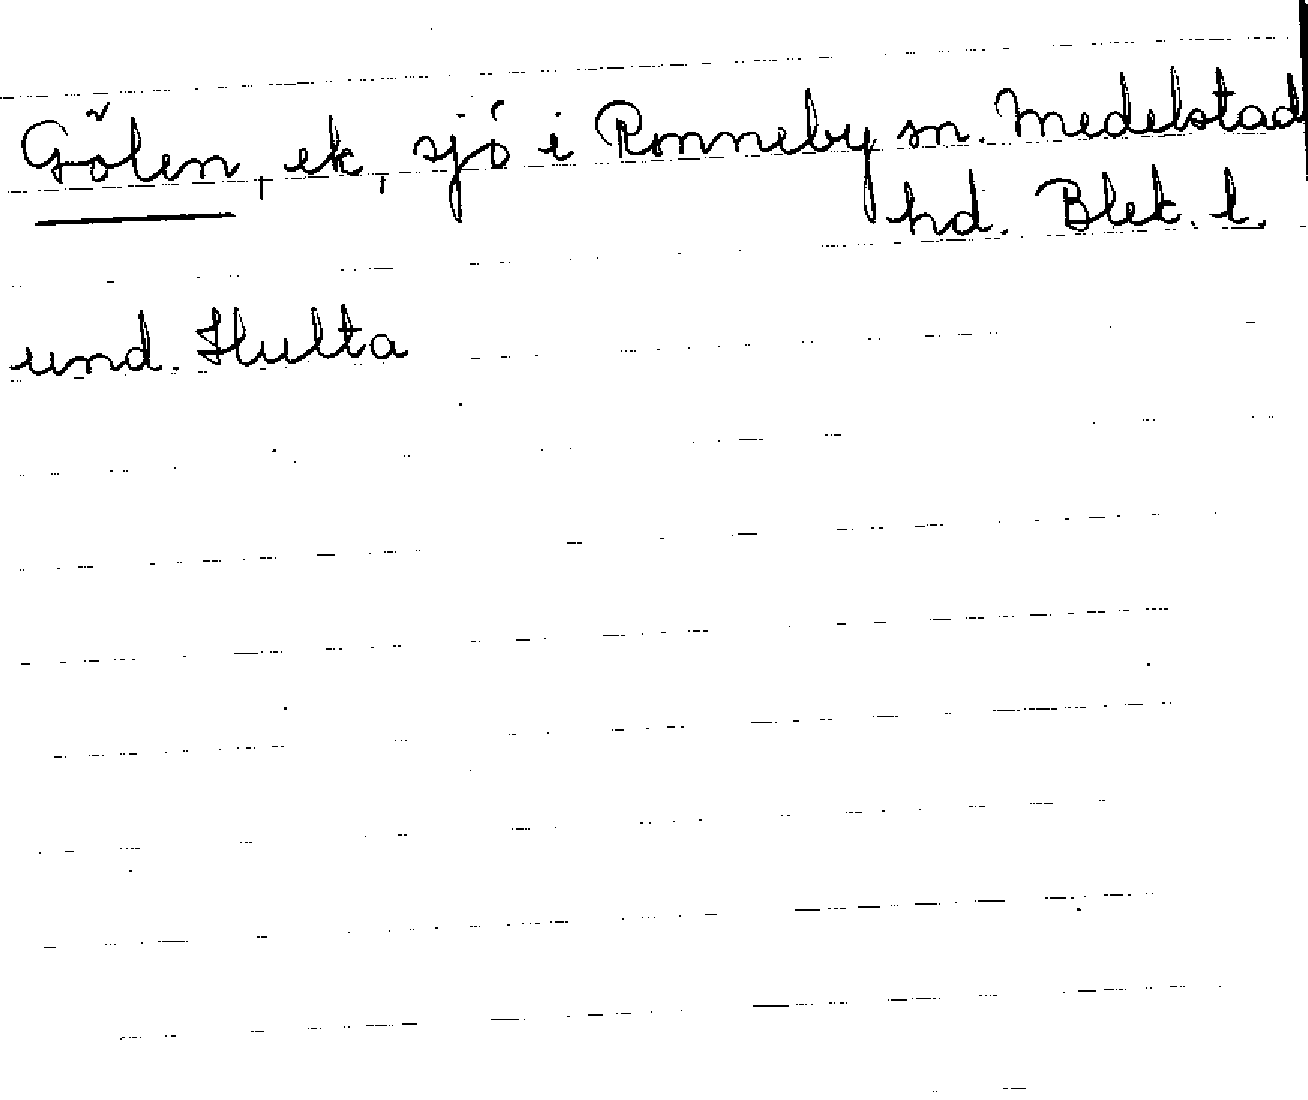 Gölen, ek, sjö i Ronneby sn. Medelstad
hd. Blek. l.
und. Hulta